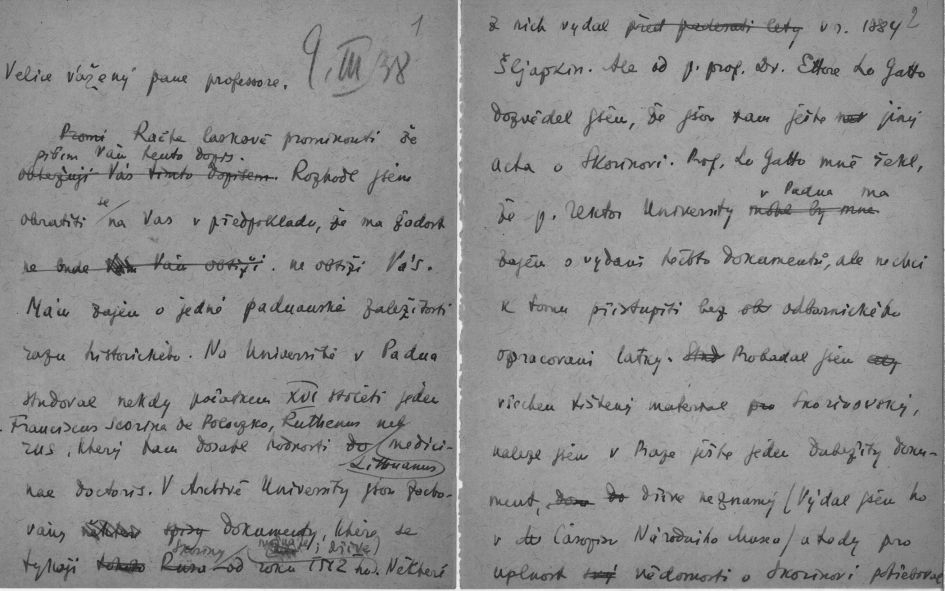 1
9. III 38
Velice vážený pane professore.
Promi Račte laskavě prominouti že
píšem Vám tento dopis.
obtežuji Vás tímto dopisem. Rozhodl jsem
se
obratiti na Vas v předpokladu, že ma žadost
ne bude Vám obtiži. ne obtiži Vás.
Mám zajem o jedné paduanské zaležitosti
razu historického. Na Université v Padua
studoval nekdy počatkem XVI stoleti jeden
Franciscus Scorina de Poloczko, Ruthenus neb
rus, který tam dosahl hodnosti do medici-
Lithuanus
nae doctoris. V Archivě University jsou zacho-
vány některé spisy dokumenty, které se
Skoriny i dříve
tykají tohoto Rusa od roku 1512 Některé
2
z nich vydal před padesati lety v r. 1884
Šljapkin. Ale od p. prof. Dr. Ettore Lo Gatto
dozvědel jsem, že jsou tam ješte jiný
acta o Skorinovi. Prof. Lo Gatto mně řekl,
v Padua ma
že p. rektor University mohl by mne
zajem o vydani těchto dokumentů, ale nechci
k tomu přistupiti bez odbornického
opracovani latky. Probadal jsem celý
všechen tištený material Skorinovský,
nalezl jsem v Praze ješte jeden duležity doku-
ment, dříve neznamý (Výdal jsem ho
v Časopise Národniho Musea) a tedy pro
uplnost vědomosti o Skorinovi potřeboval